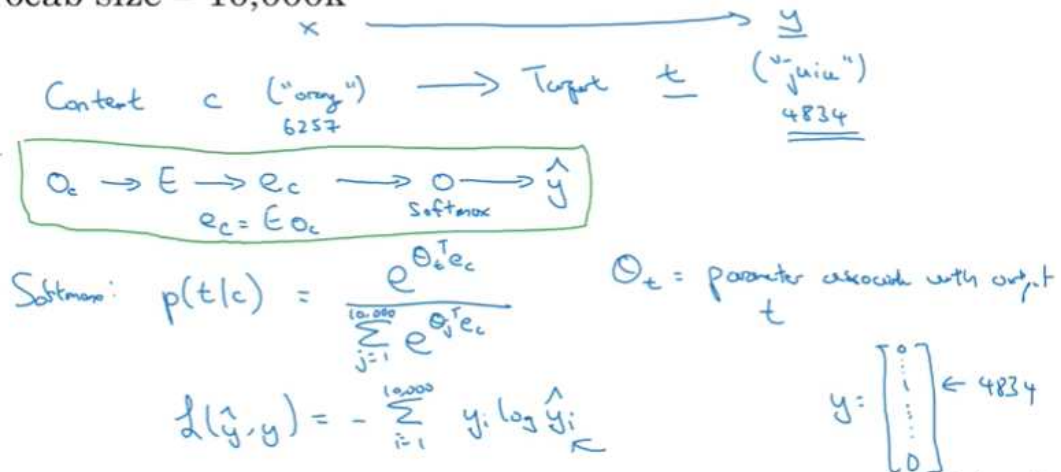 ocab size = 10,000k
x ⟶ y
Content c ("orang") ⟶ Target t ("juice")
6257 4834
O_c → E → e_c ⟶ O ⟶ ŷ
Softmax
e_c = E O_c
Softmax: p(t|c) = e^{θ_t^T e_c} / Σ_{j=1}^{10,000} e^{θ_j^T e_c} θ_t = parameter associate with output
t
ℒ(ŷ, y) = - Σ_{i=1}^{10,000} y_i log ŷ_i y = [0 ⋮ 1 ⋮ 0] ← 4834